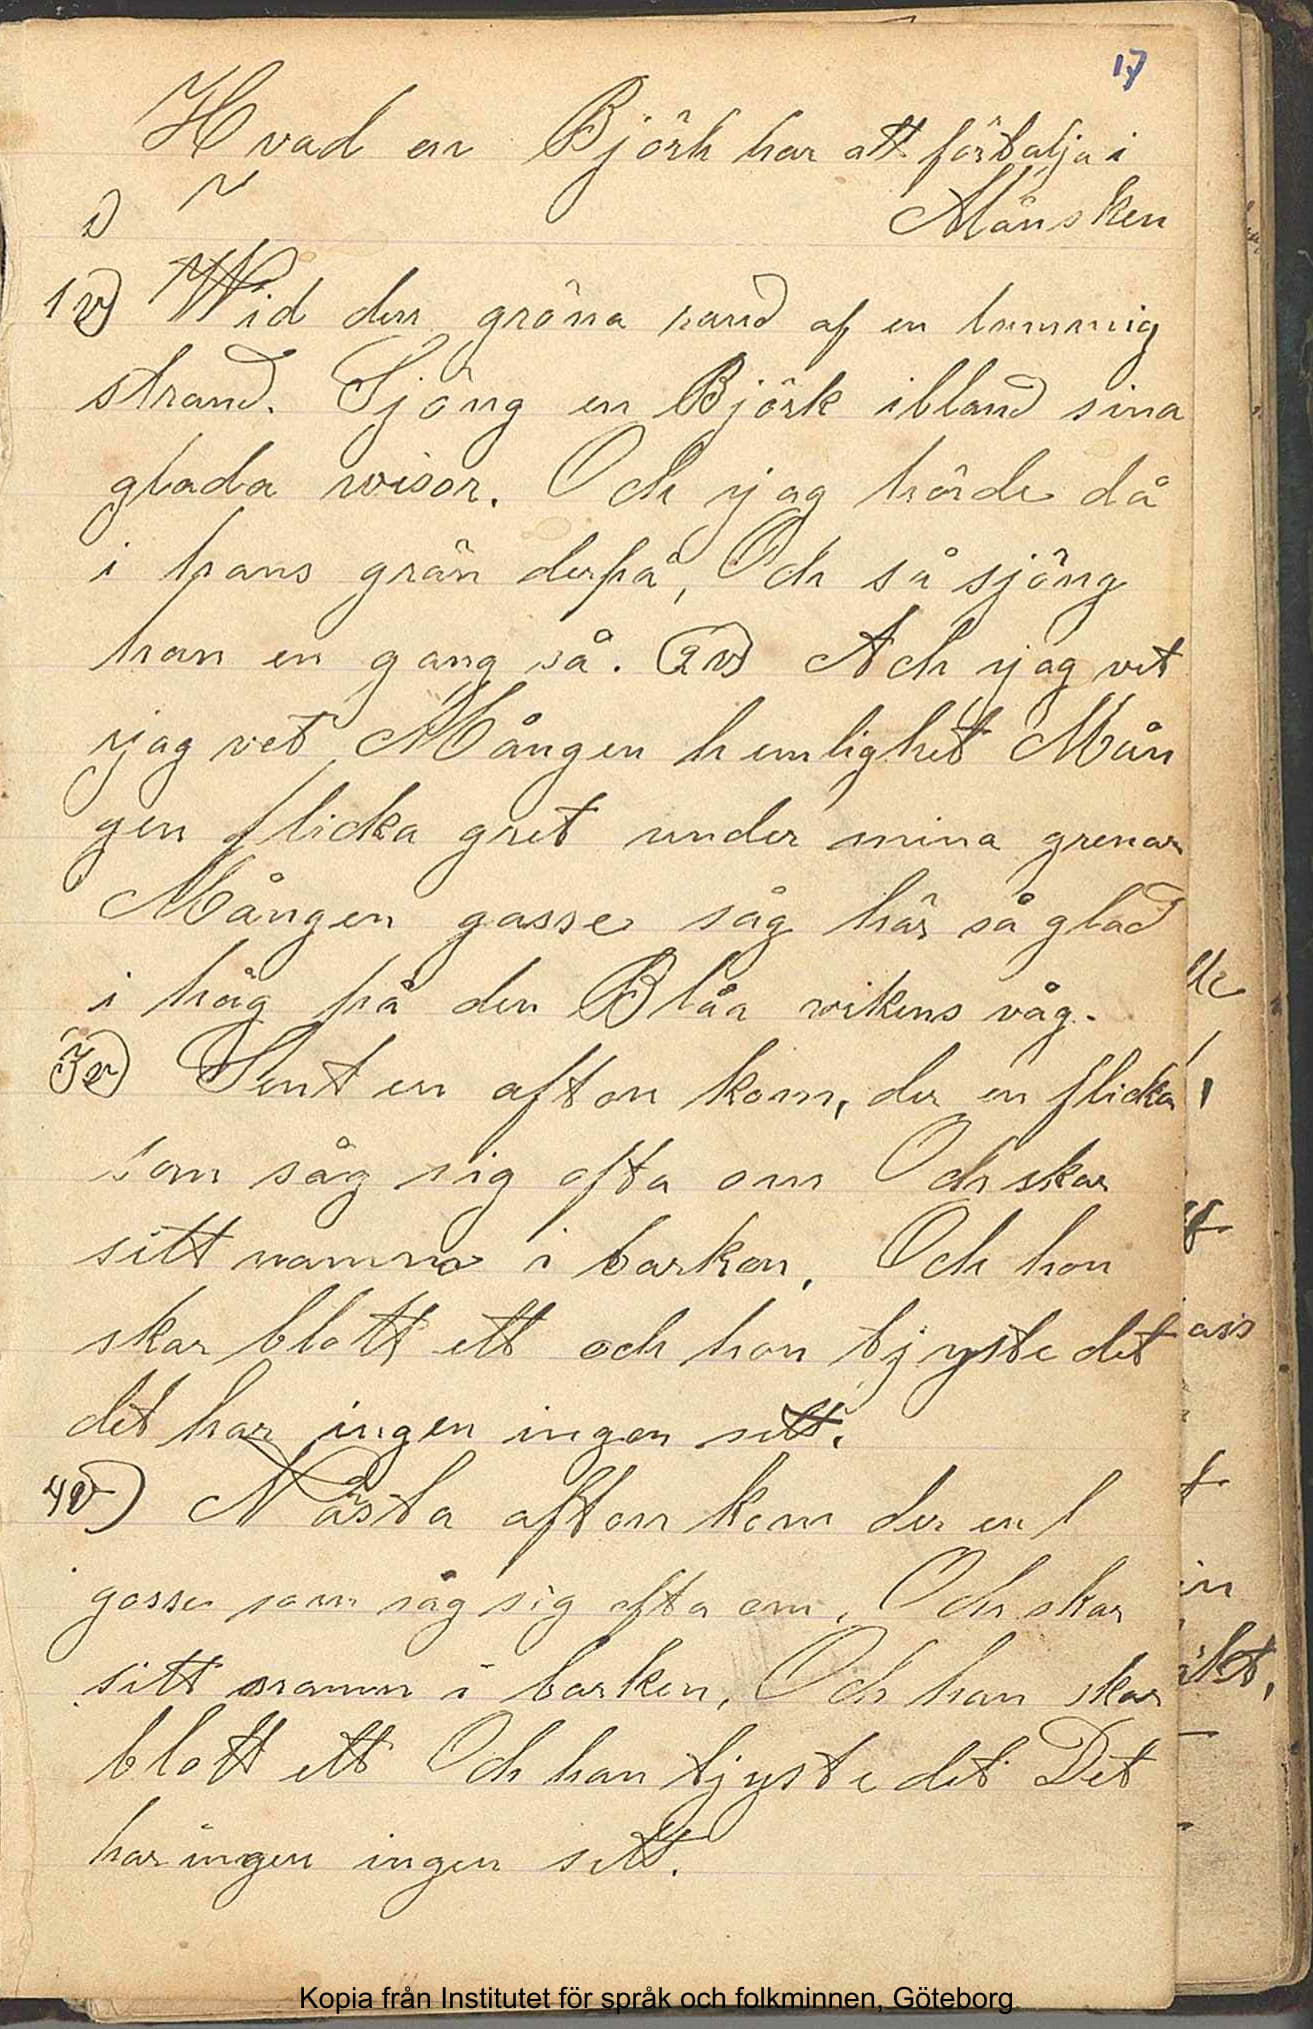 17
Hvad en Björk har att förtälja i
Månsken
1 v) Wid den gröna rand af en lummig
strand. Sjöng en Björk ibland sina
glada wisor. Och jag hörde då
i hans grän derpå, Och så sjöng
han en gang så. 2 v) Ack jag vet
jag vet Mången hemlighet Mån
gen flicka gret under mina grenar
Mången gasse såg här så glad
i håg på den Blåa wikens våg.
3 v) Sent en afton kom, der en flicka
som såg sig ofta om Och skar
sitt namn i barken, Och hon
skar blott ett och hon tjyste det
det har ingen ingen sett.
4 v) Nästa afton kom der en
gosse som såg sig ofta om, Och skar
sitt namn i barken, Och han skar
blott ett Och han tjyste det Det
har ingen ingen sett.
Kopia från Institutet för språk och folkminnen, Göteborg